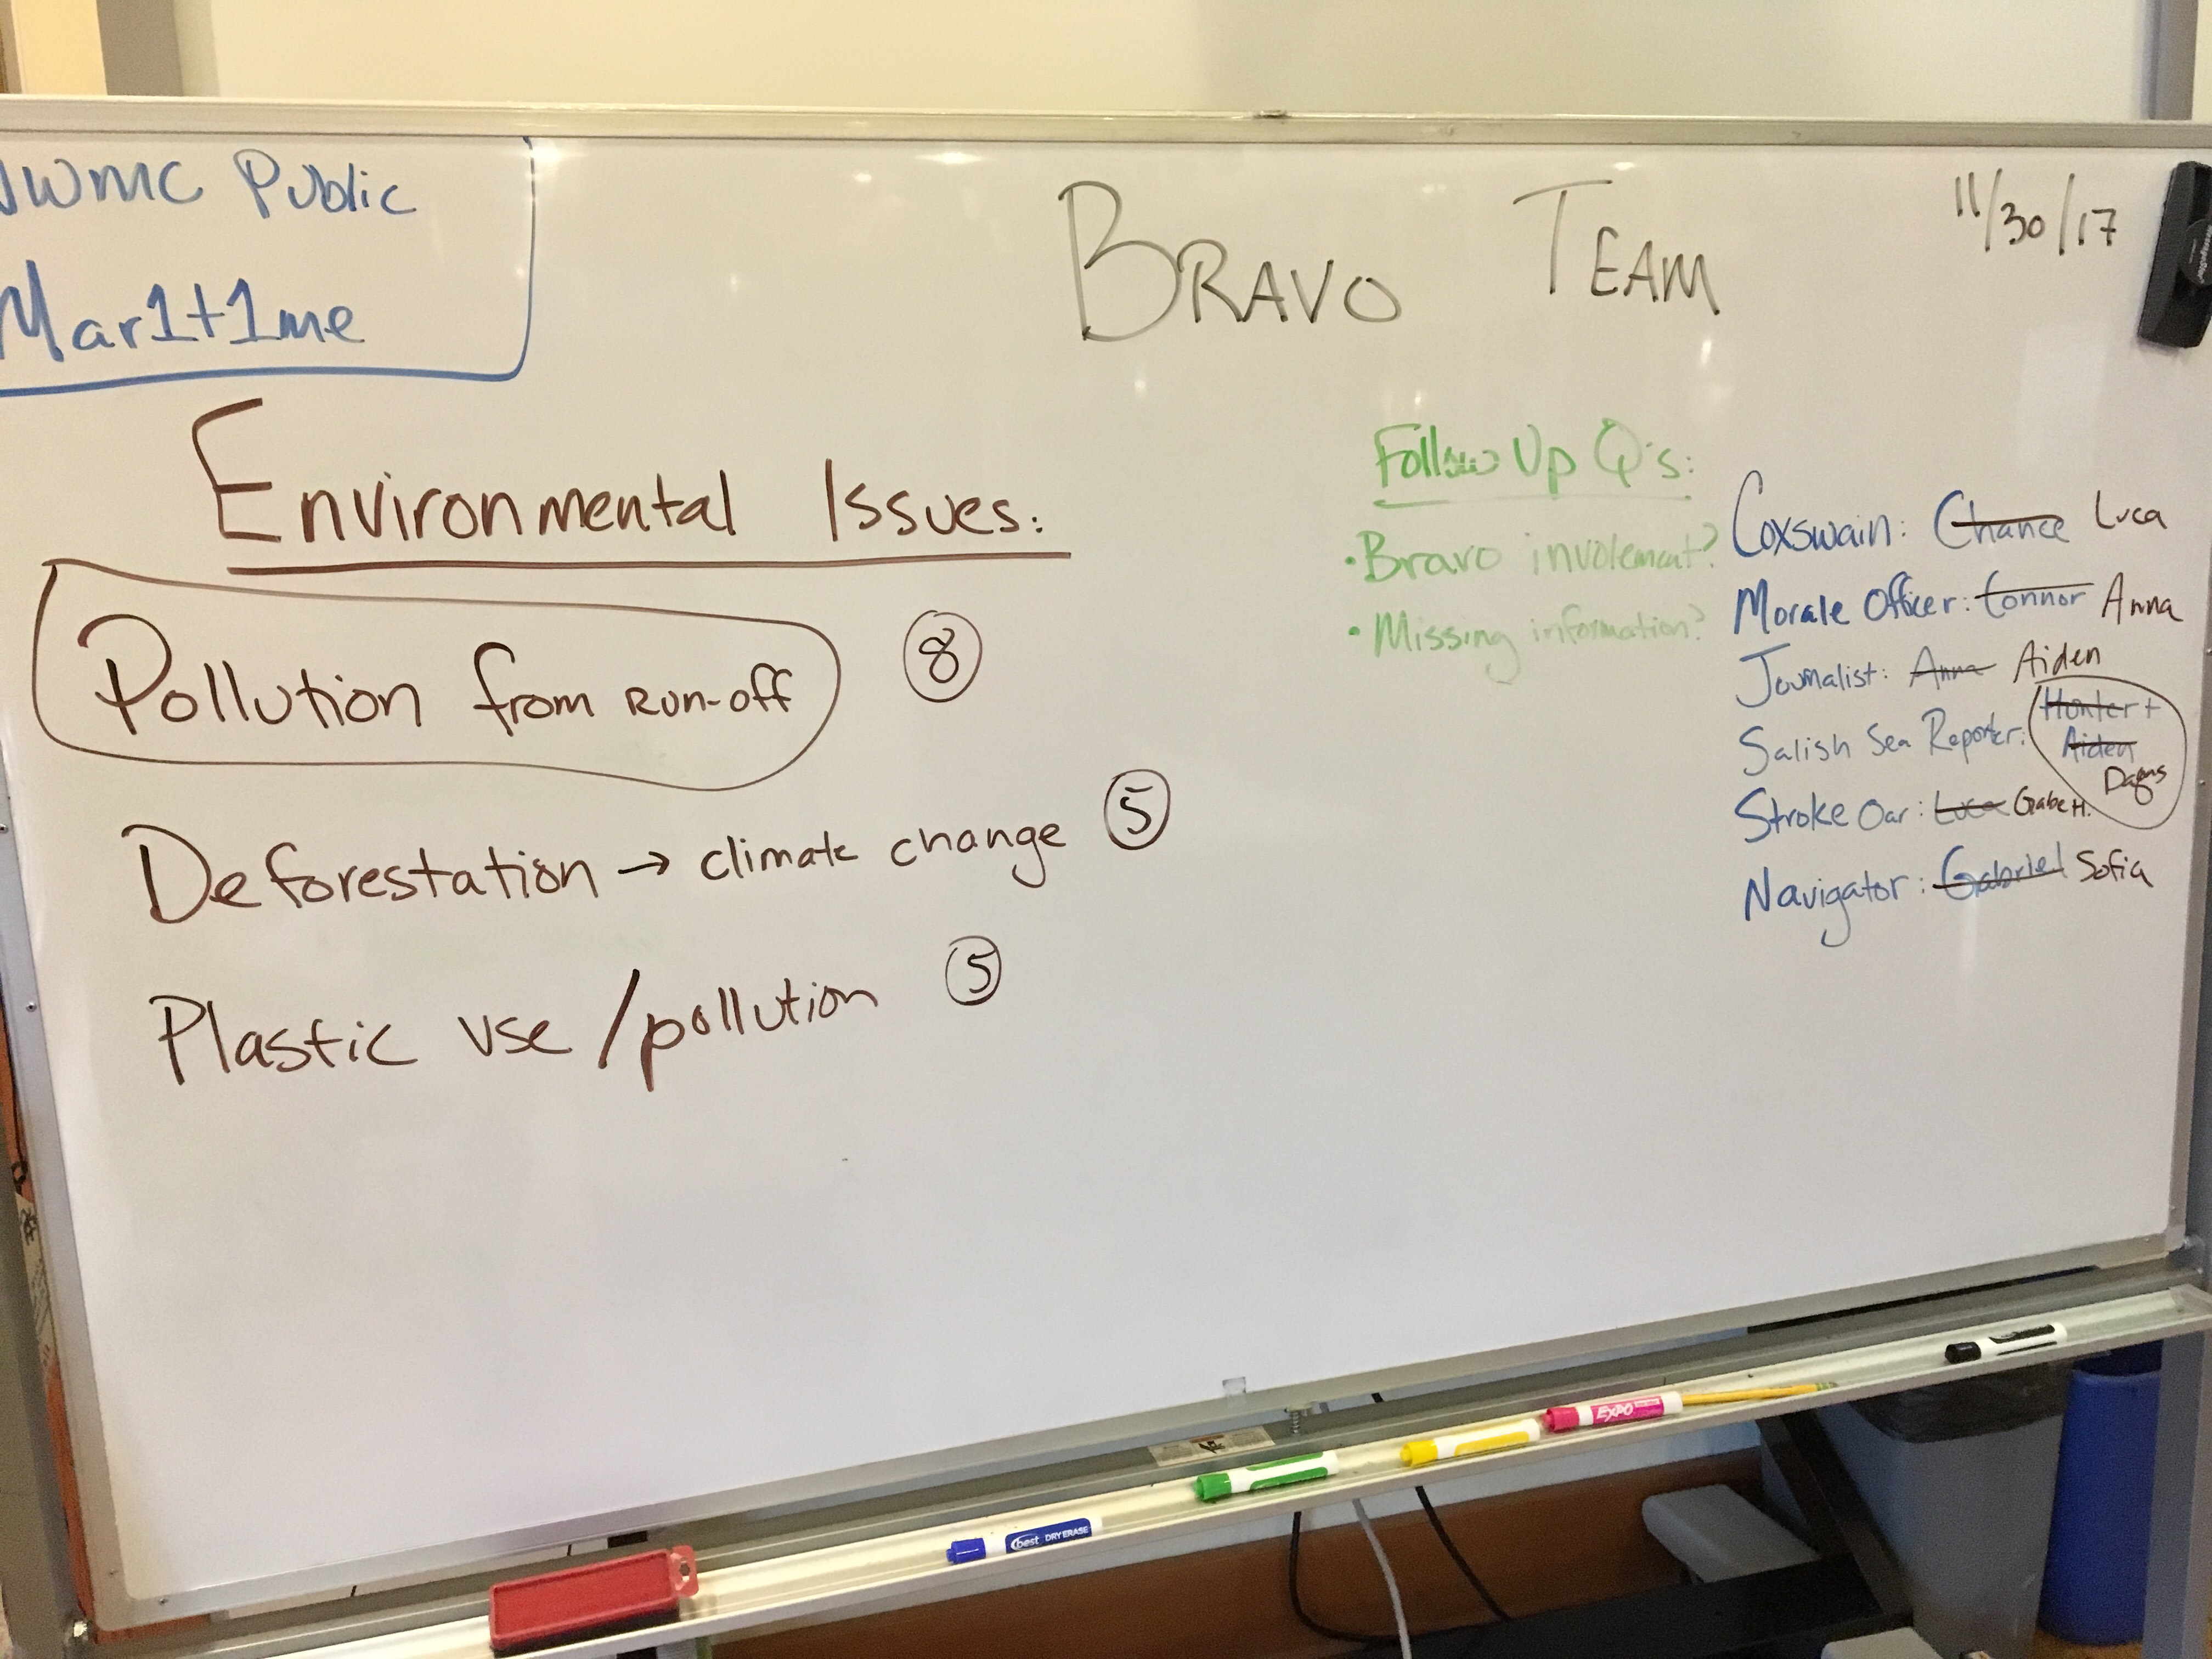 NWMC Public
Mar1t1me
BRAVO TEAM
11/30/17
Environmental Issues:
Pollution from Run-off 8
Deforestation → climate change 5
Plastic use/pollution 5
Follow Up Q's:
• Bravo involement?
• Missing information?
Coxswain: Chance Luca
Morale Officer: Connor Anna
Journalist: Anna Aiden
Salish Sea Reporter: Hunter +
Aiden
Stroke Oar: Luca Gabe H.
Navigator: Gabriel Sofia
best DRY ERASE
EXPO